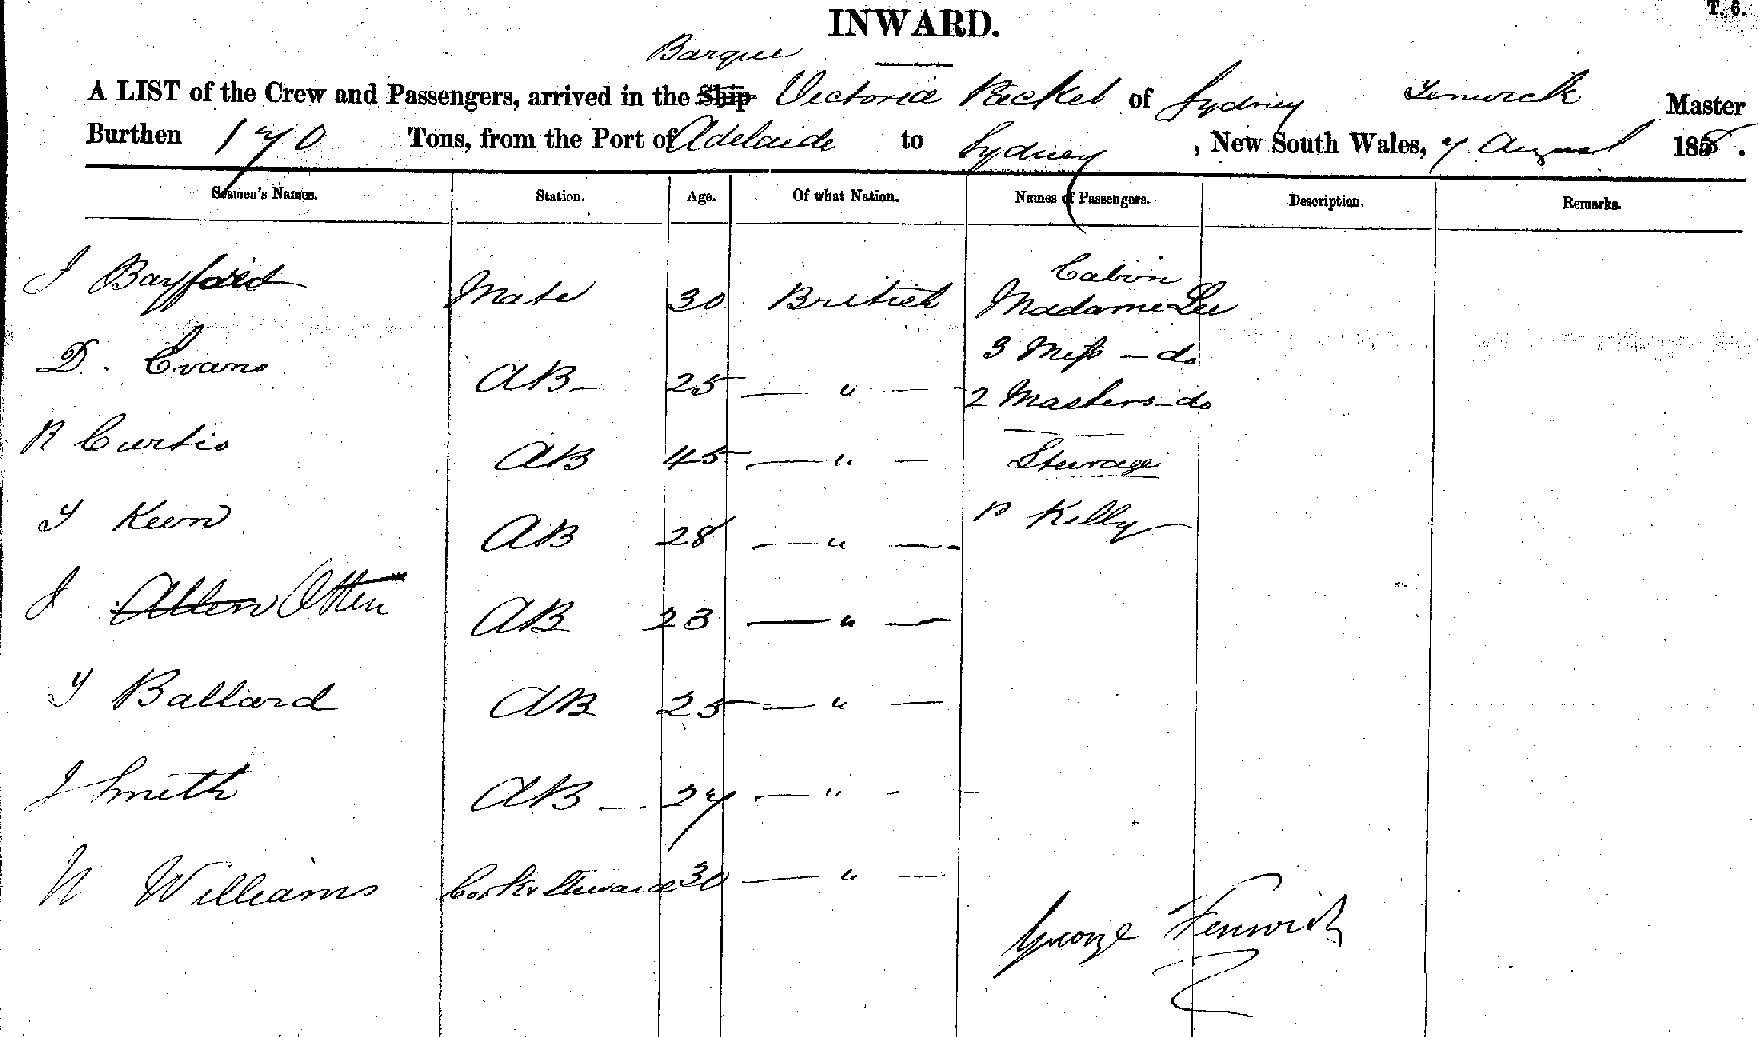 T. 6.
INWARD.
Barque
A LIST of the Crew and Passengers, arrived in the Ship Victoria Packet of Sydney Fenwick Master
Burthen 170 Tons, from the Port of Adelaide to Sydney, New South Wales, 7 August 1858.
Seamen's Names. Station. Age. Of what Nation. Names of Passengers. Description. Remarks.
Cabin
J Bayfield Mate 30 British Madame Lee
3 Miss — do
D. Evans AB — 25 — " —
2 Masters — do
R Curtis AB 45 — " — Steerage
P Kelly
T Keen AB 28 — " —
J Allen Otten AB 23 — " —
T Ballard AB 25 — " —
J Smith AB — 27 — " —
W Williams Cook & Steward 30 — " —
George Fenwick